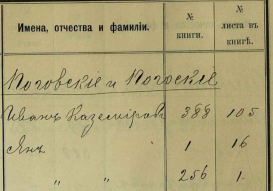 Имена, отчества и фамиліи. № книги. № листа въ книгѣ.
Роговскіе и Рогоскіе
Иванъ Каземіровъ 388 105
Янъ 1 16
" " 256 1